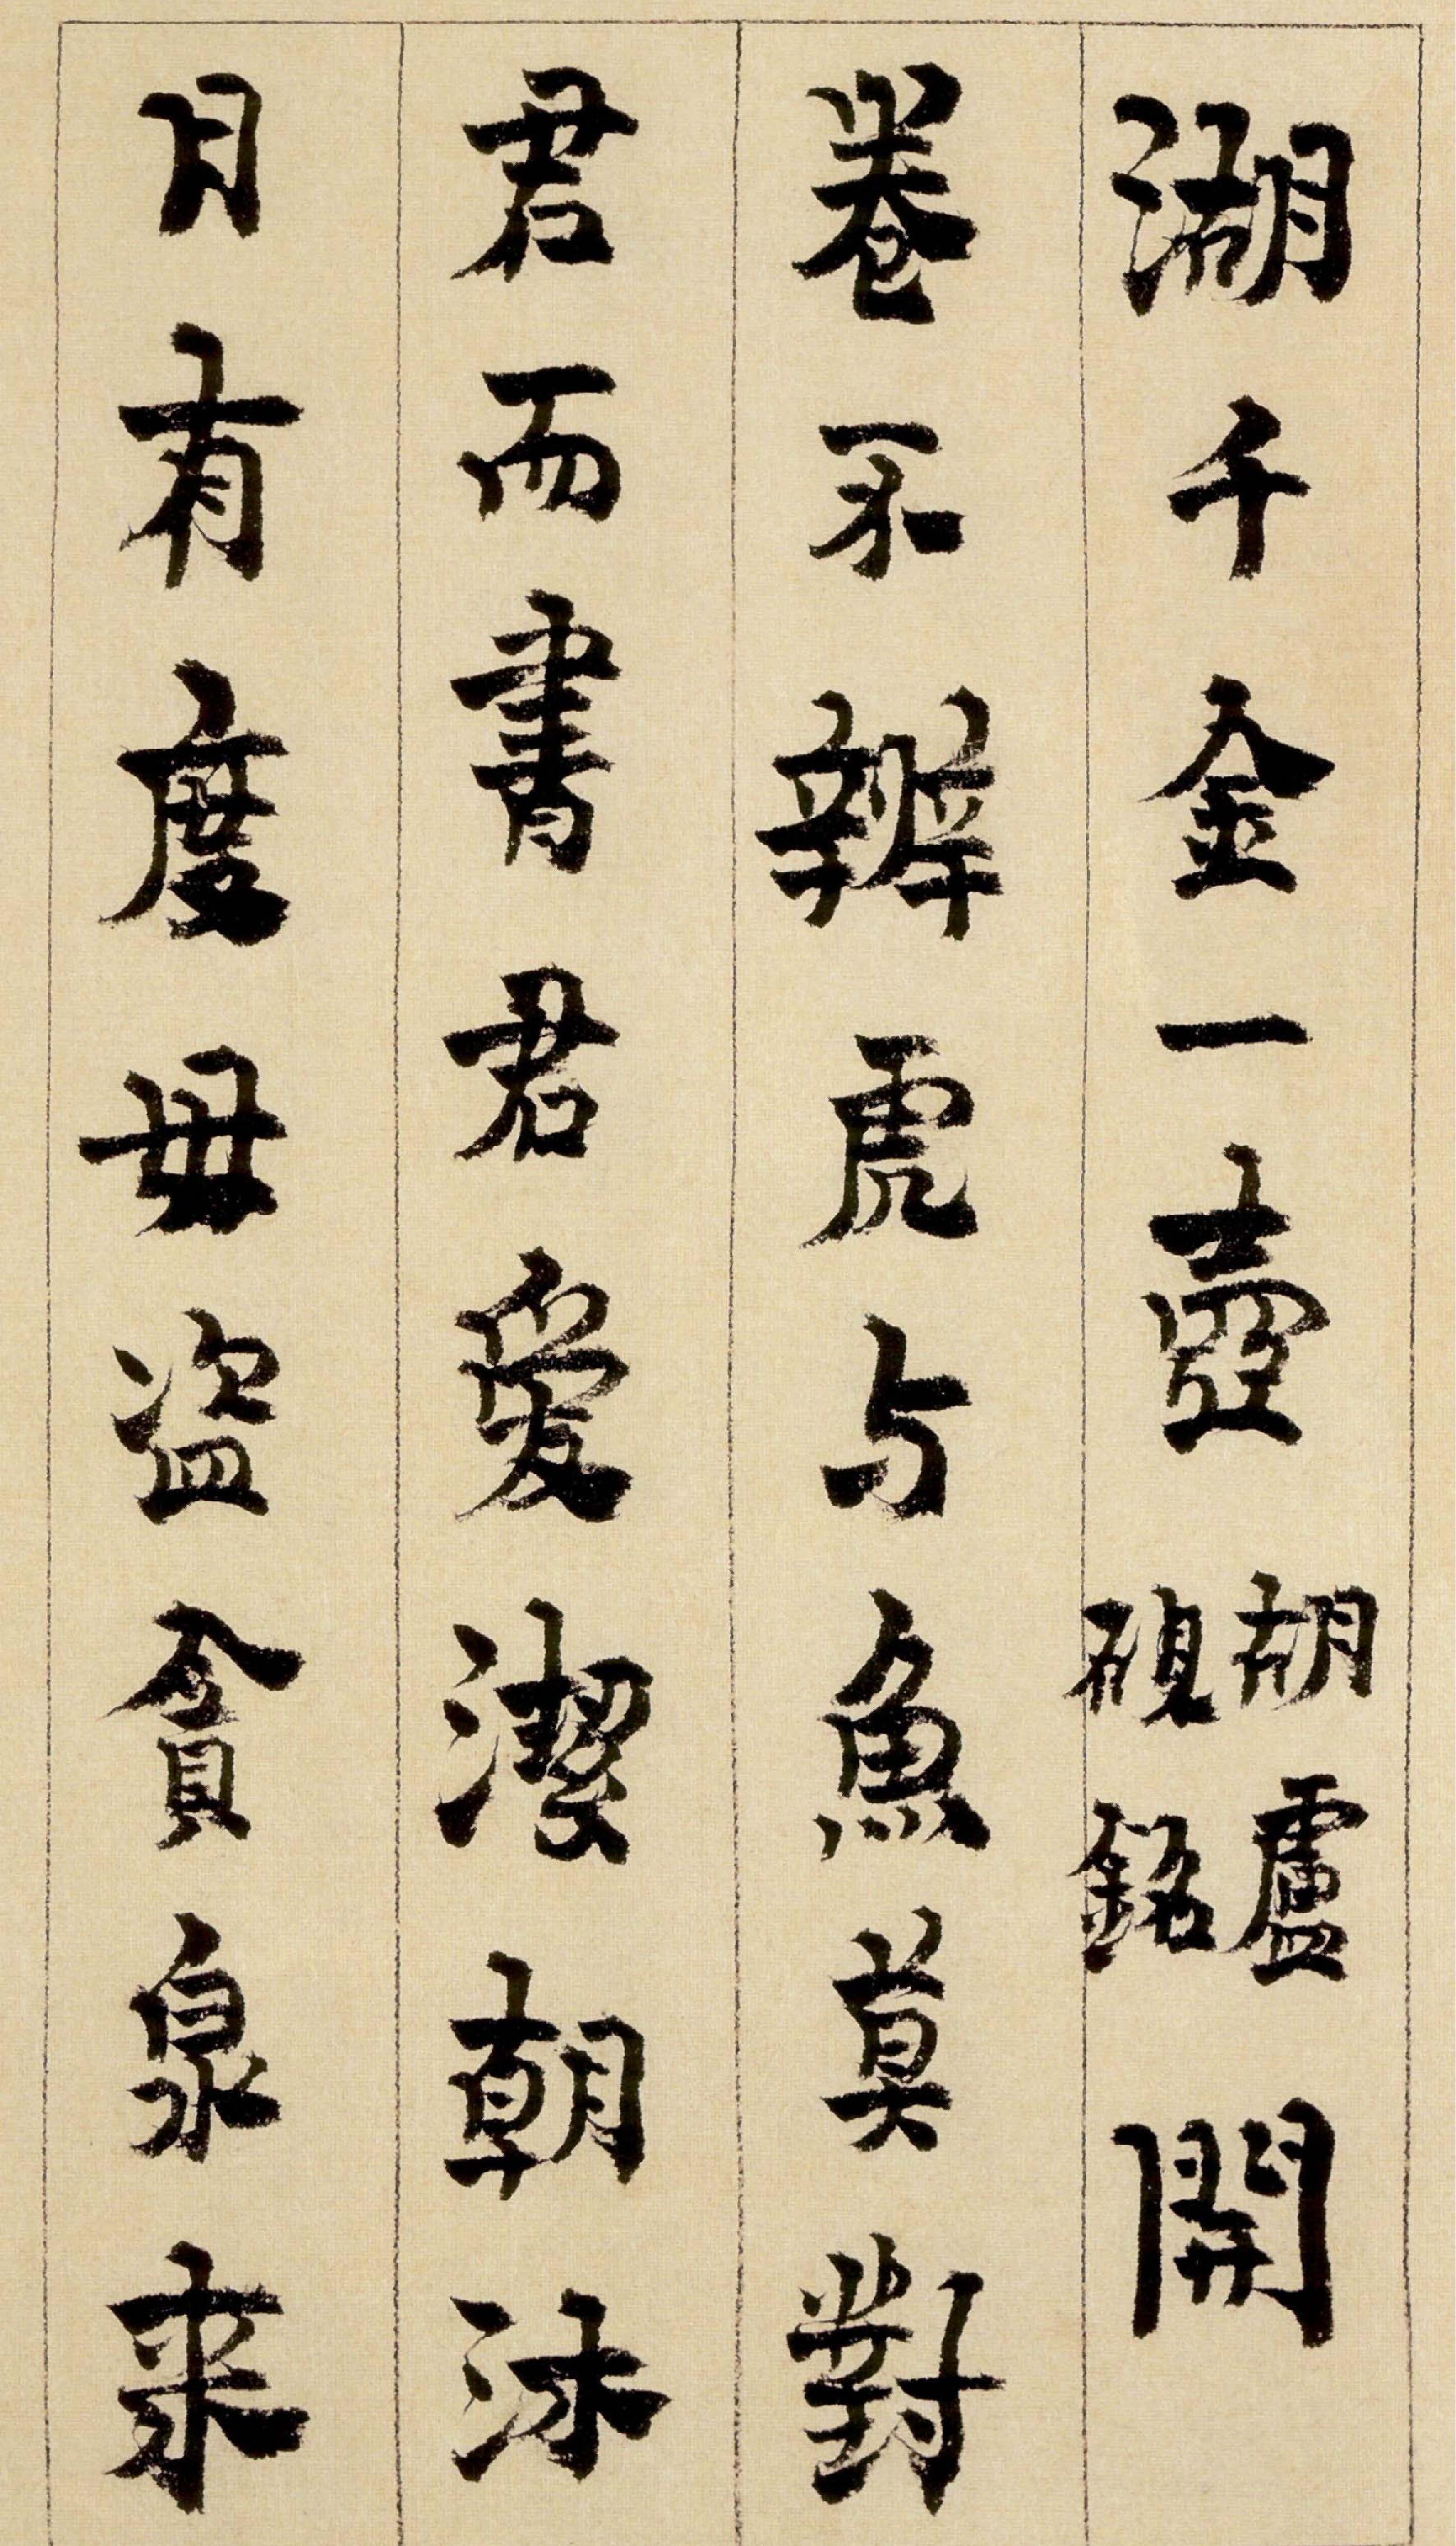 湖千金一壺胡盧硯銘開
卷不辨虎与魚莫對
君而書君愛潔朝沐
月有度毋盜貪泉來